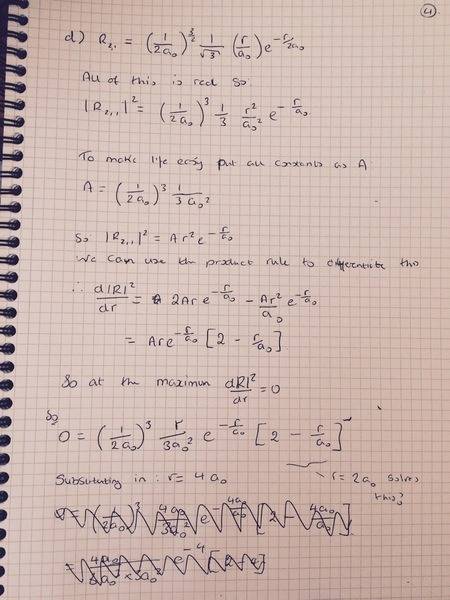 ④
d) R₂,₁ = (1/2a₀)^(3/2) 1/√3 (r/a₀) e^(-r/2a₀)
All of this is real so
|R₂,₁|² = (1/2a₀)³ 1/3 r²/a₀² e^(-r/a₀)
To make life easy put all constants as A
A = (1/2a₀)³ 1/3a₀²
So |R₂,₁|² = Ar²e^(-r/a₀)
We can use the product rule to differentiate this
∴ d|R|²/dr = 2Are^(-r/a₀) - Ar²/a₀ e^(-r/a₀)
= Are^(-r/a₀) [2 - r/a₀]
So at the maximum d|R|²/dr = 0
So
0 = (1/2a₀)³ r/3a₀² e^(-r/a₀) [2 - r/a₀]
Substituting in : r = 4a₀
r = 2a₀ solves
this?
0 = (1/2a₀)³ 4a₀/3a₀² e^(-4a₀/a₀) [2 - 4a₀/a₀]
= 4a₀/8a₀³×3a₀² e^(-4) [2 - 4]